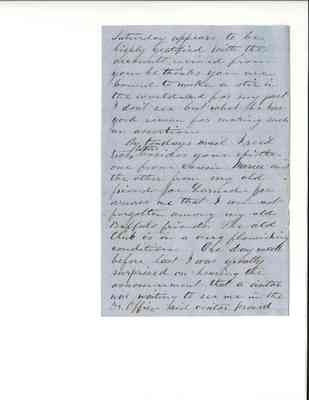 Saturday appears to be
highly gratified with the
received from
you he thinks you are
bound to make a stir in
the world and for my part
I don't see but what he has
good reason for making such
an assertion
By todays mail I recd
two letters besides your epistle
one from Cousin and
the other from my old
friend
assures me that I am not
forgotten among my old
Buffalo friends. The old
Club is in a very flourishing
condition. One day week
before last I was greatly
surprised on hearing the
announcement that a visitor
was waiting to see me in the
Office said visitor proved